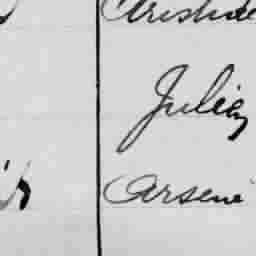 Aristide
Julien
Arsene